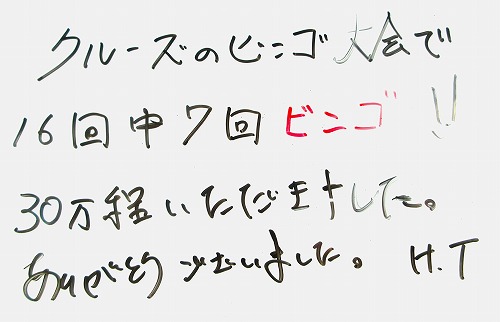 クルーズのビンゴ大会で
16回中7回ビンゴ!!
30万程いただきました。
ありがとうございました。 H.T